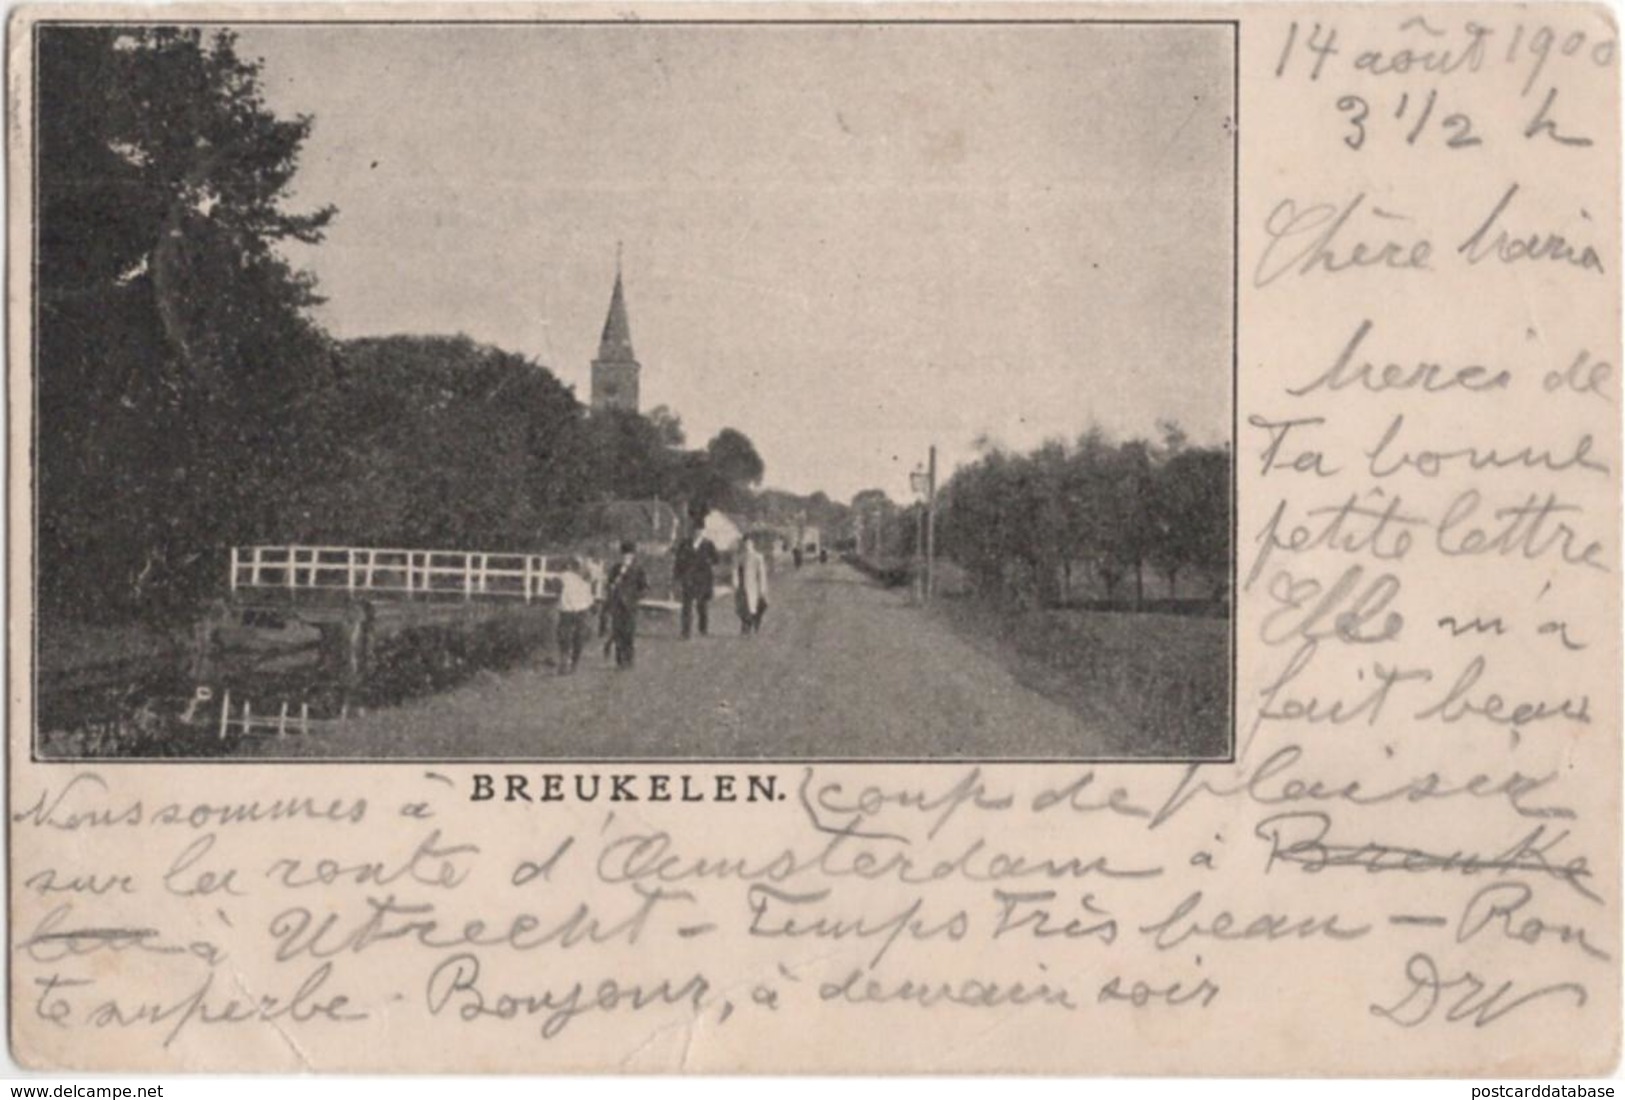 14 août 1900
3 1/2 h
Chère Maria
Merci de
Ta bonne
petite lettre
Elle m'a
fait beau
coup de plaisir
BREUKELEN.
Nous sommes à
sur la route d'Amsterdam à Breuke
len à Utrecht - Temps Très beau - Rou
te superbe. Bonjour, à demain soir
DW
www.delcampe.net
postcarddatabase